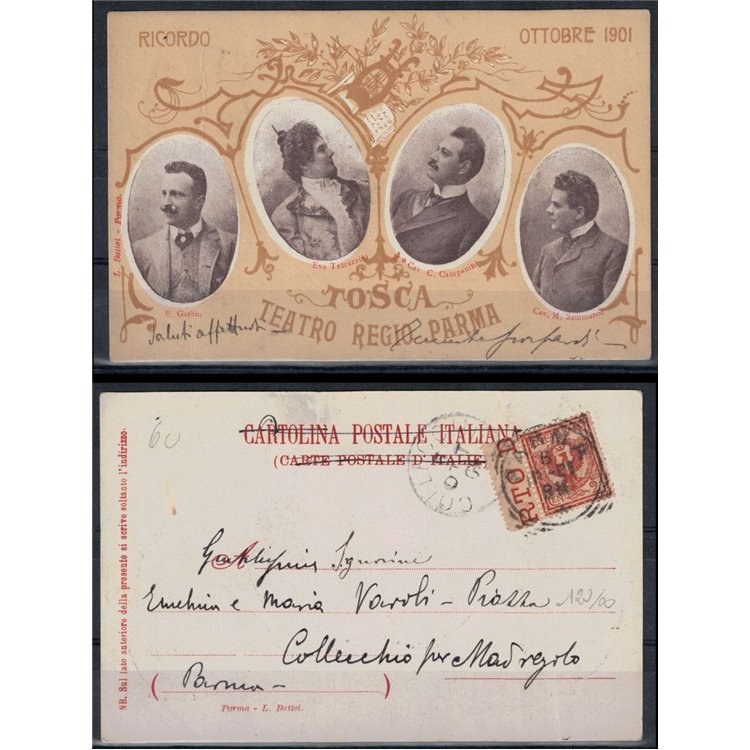 RICORDO OTTOBRE 1901
L. Battei - Parma.
E. Garbin
Eva Tetrazzini
M.o Cav. C. Campanini
Cav. M. Sammarco
TOSCA
TEATRO REGIO PARMA
Saluti affettuosi
60
CARTOLINA POSTALE ITALIANA
(CARTE POSTALE D'ITALIE)
R.TO
NB. Sul lato anteriore della presente si scrive soltanto l'indirizzo.
A
Gentilissime Signorine
e Maria Varoli - Piazza
120/00
Collecchio per Madregolo
(Parma - )
Parma - L. Battei.